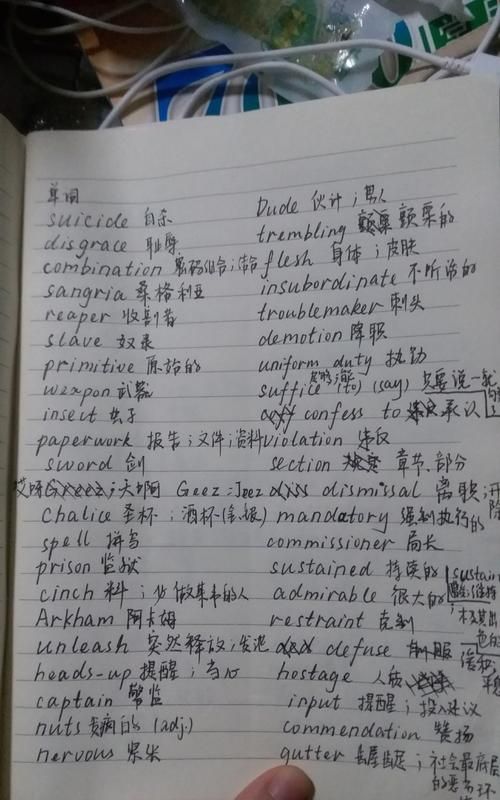 单词
suicide 自杀
disgrace 耻辱
combination 密码组合;结合
sangria 桑格利亚
reaper 收割者
slave 奴隶
primitive 原始的
weapon 武器
insect 虫子
paperwork 报告;文件;资料
sword 剑
Geez=Jeez
chalice 圣杯;酒杯(金,银)
spell 拼写
prison 监狱
cinch
Arkham 阿卡姆
unleash 突然释放;发泄
heads-up 提醒;当心
captain 警监
nuts 发疯的 (adj.)
nervous 紧张
Dude 伙计;男人
trembling 颤栗的
flesh 身体;皮肤
insubordinate 不听话的
troublemaker 刺头
demotion 降职
uniform duty 执勤
suffice (to) (say) 只要说一就
confess to 承认
violation 违反
section 章节、部分
dismissal 离职;开除
mandatory 强制执行的
commissioner 局长
sustained 持续的
sustain
admirable 很大的
restraint 克制
defuse
hostage 人质
input 提醒;投入建议
commendation 赞扬
gutter 社会最底层